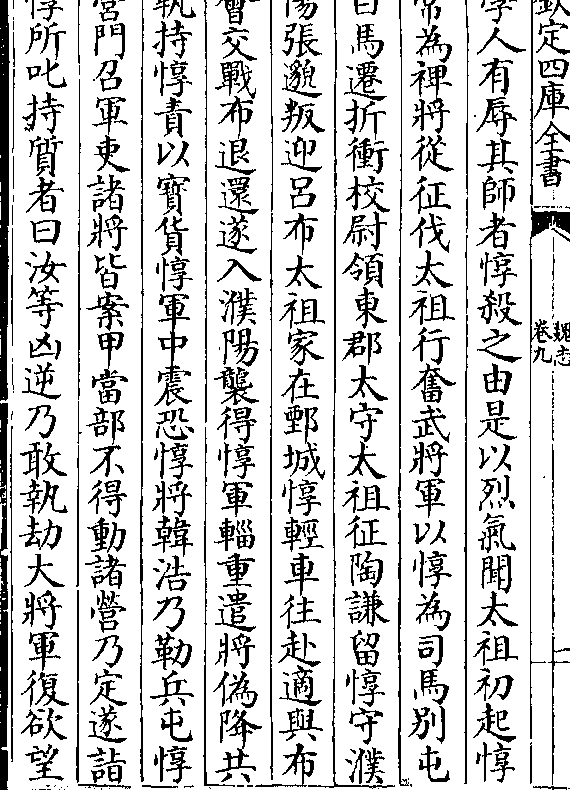 欽定四庫全書
魏志
卷九
一
學人有辱其師者惇殺之由是以烈氣聞太祖初起惇
常為裨將從征伐太祖行奮武將軍以惇為司馬別屯
白馬遷折衝校尉領東郡太守太祖征陶謙留惇守濮
陽張邈叛迎呂布太祖家在鄄城惇輕車往赴適與布
會交戰布退還遂入濮陽襲得惇軍輜重遣將偽降共
執持惇責以寶貨惇軍中震恐惇將韓浩乃勒兵屯惇
營門召軍吏諸將皆案甲當部不得動諸營乃定遂詣
惇所叱持質者曰汝等凶逆乃敢執劫大將軍復欲望